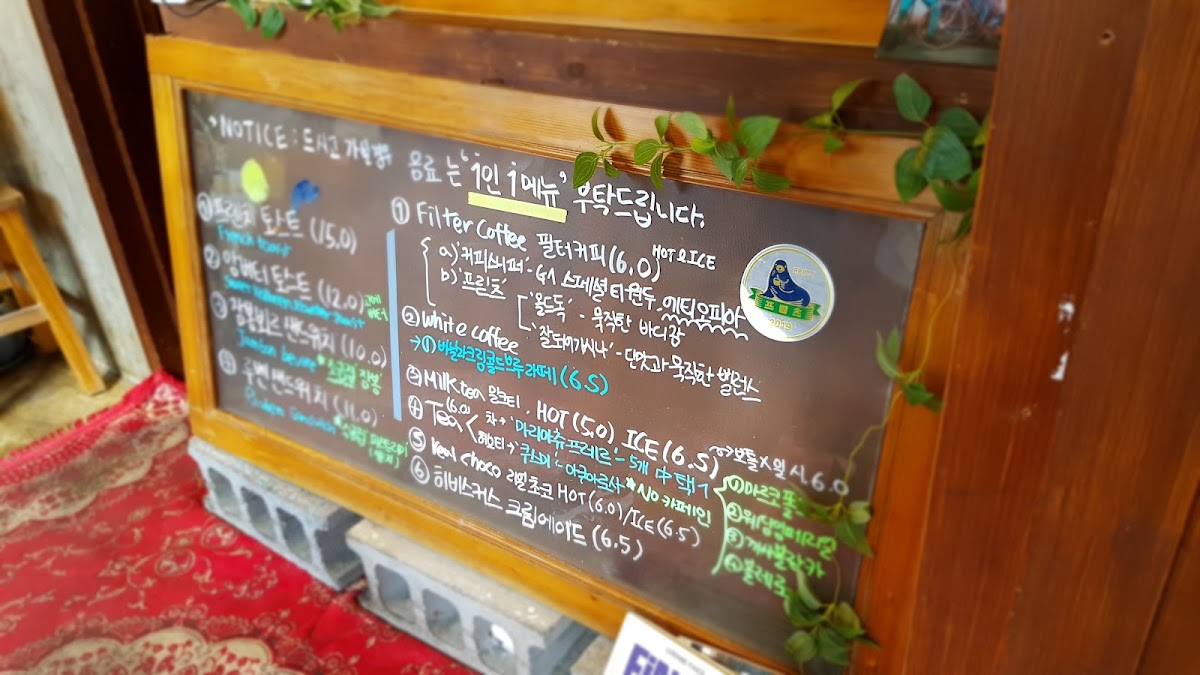 NOTICE : 드시고 가실 경우 음료는 '1인 1메뉴' 부탁드립니다.
① 프렌치 토스트 (15.0)
French toast
② 앙버터 토스트 (12.0) 고메버터
③ 잠봉뵈르 샌드위치 (10.0)
Jambon beurre
④ 루벤 샌드위치 (11.0)
Reuben sandwich
① Filter Coffee 필터커피 (6.0) HOT & ICE
a) '커피스니퍼' - G1 스페셜티원두, 에티오피아
b) '프릳츠'
'올드독' - 묵직한 바디감
'잘되어가시나' - 단맛과 묵직한 밸런스
② White coffee
→ ① 바닐라크림콜드브루라떼 (6.5)
③ Milk tea 밀크티. HOT (5.0) ICE (6.5) 보틀 X일 시 6.0
④ Tea (6.0)
차 → '마리아쥬프레르' - 5개 中 택 1
허브티 → '쿠스미' - 아쿠아로사 * NO 카페인
⑤ Real choco 리얼초코 HOT (6.0) / ICE (6.5)
⑥ 히비스커스 크림에이드 (6.5)
① 마르코폴로
② 웨딩임페리얼
③ 카사블랑카
④ 볼레로
프릳츠